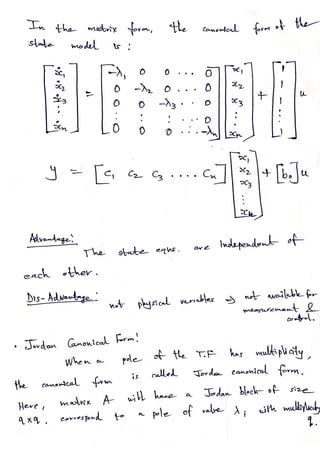 In the matrix form, the canonical form of the
state model is :
[ẋ₁ ẋ₂ ẋ₃ ⋮ ẋₙ] = [-λ₁ 0 0 ... 0
0 -λ₂ 0 ... 0
0 0 -λ₃ ... 0
⋮ ⋮ ⋮ ⋮
0 0 0 ... -λₙ] [x₁ x₂ x₃ ⋮ xₙ] + [1 1 1 ⋮ 1] u
y = [C₁ C₂ C₃ .... Cₙ] [x₁ x₂ x₃ ⋮ xₙ] + [b₀]u
Advantage:
The state eqns. are independent of
each other.
Dis-Advantage: not physical variables → not available for
measurement &
control.
• Jordan Canonical Form:
When a pole of the T.F has multiplicity,
the canonical form is called Jordan canonical form.
Here, matrix A will have a Jordan block of size
q×q, correspond to a pole of value λ, with multiplicity
q.